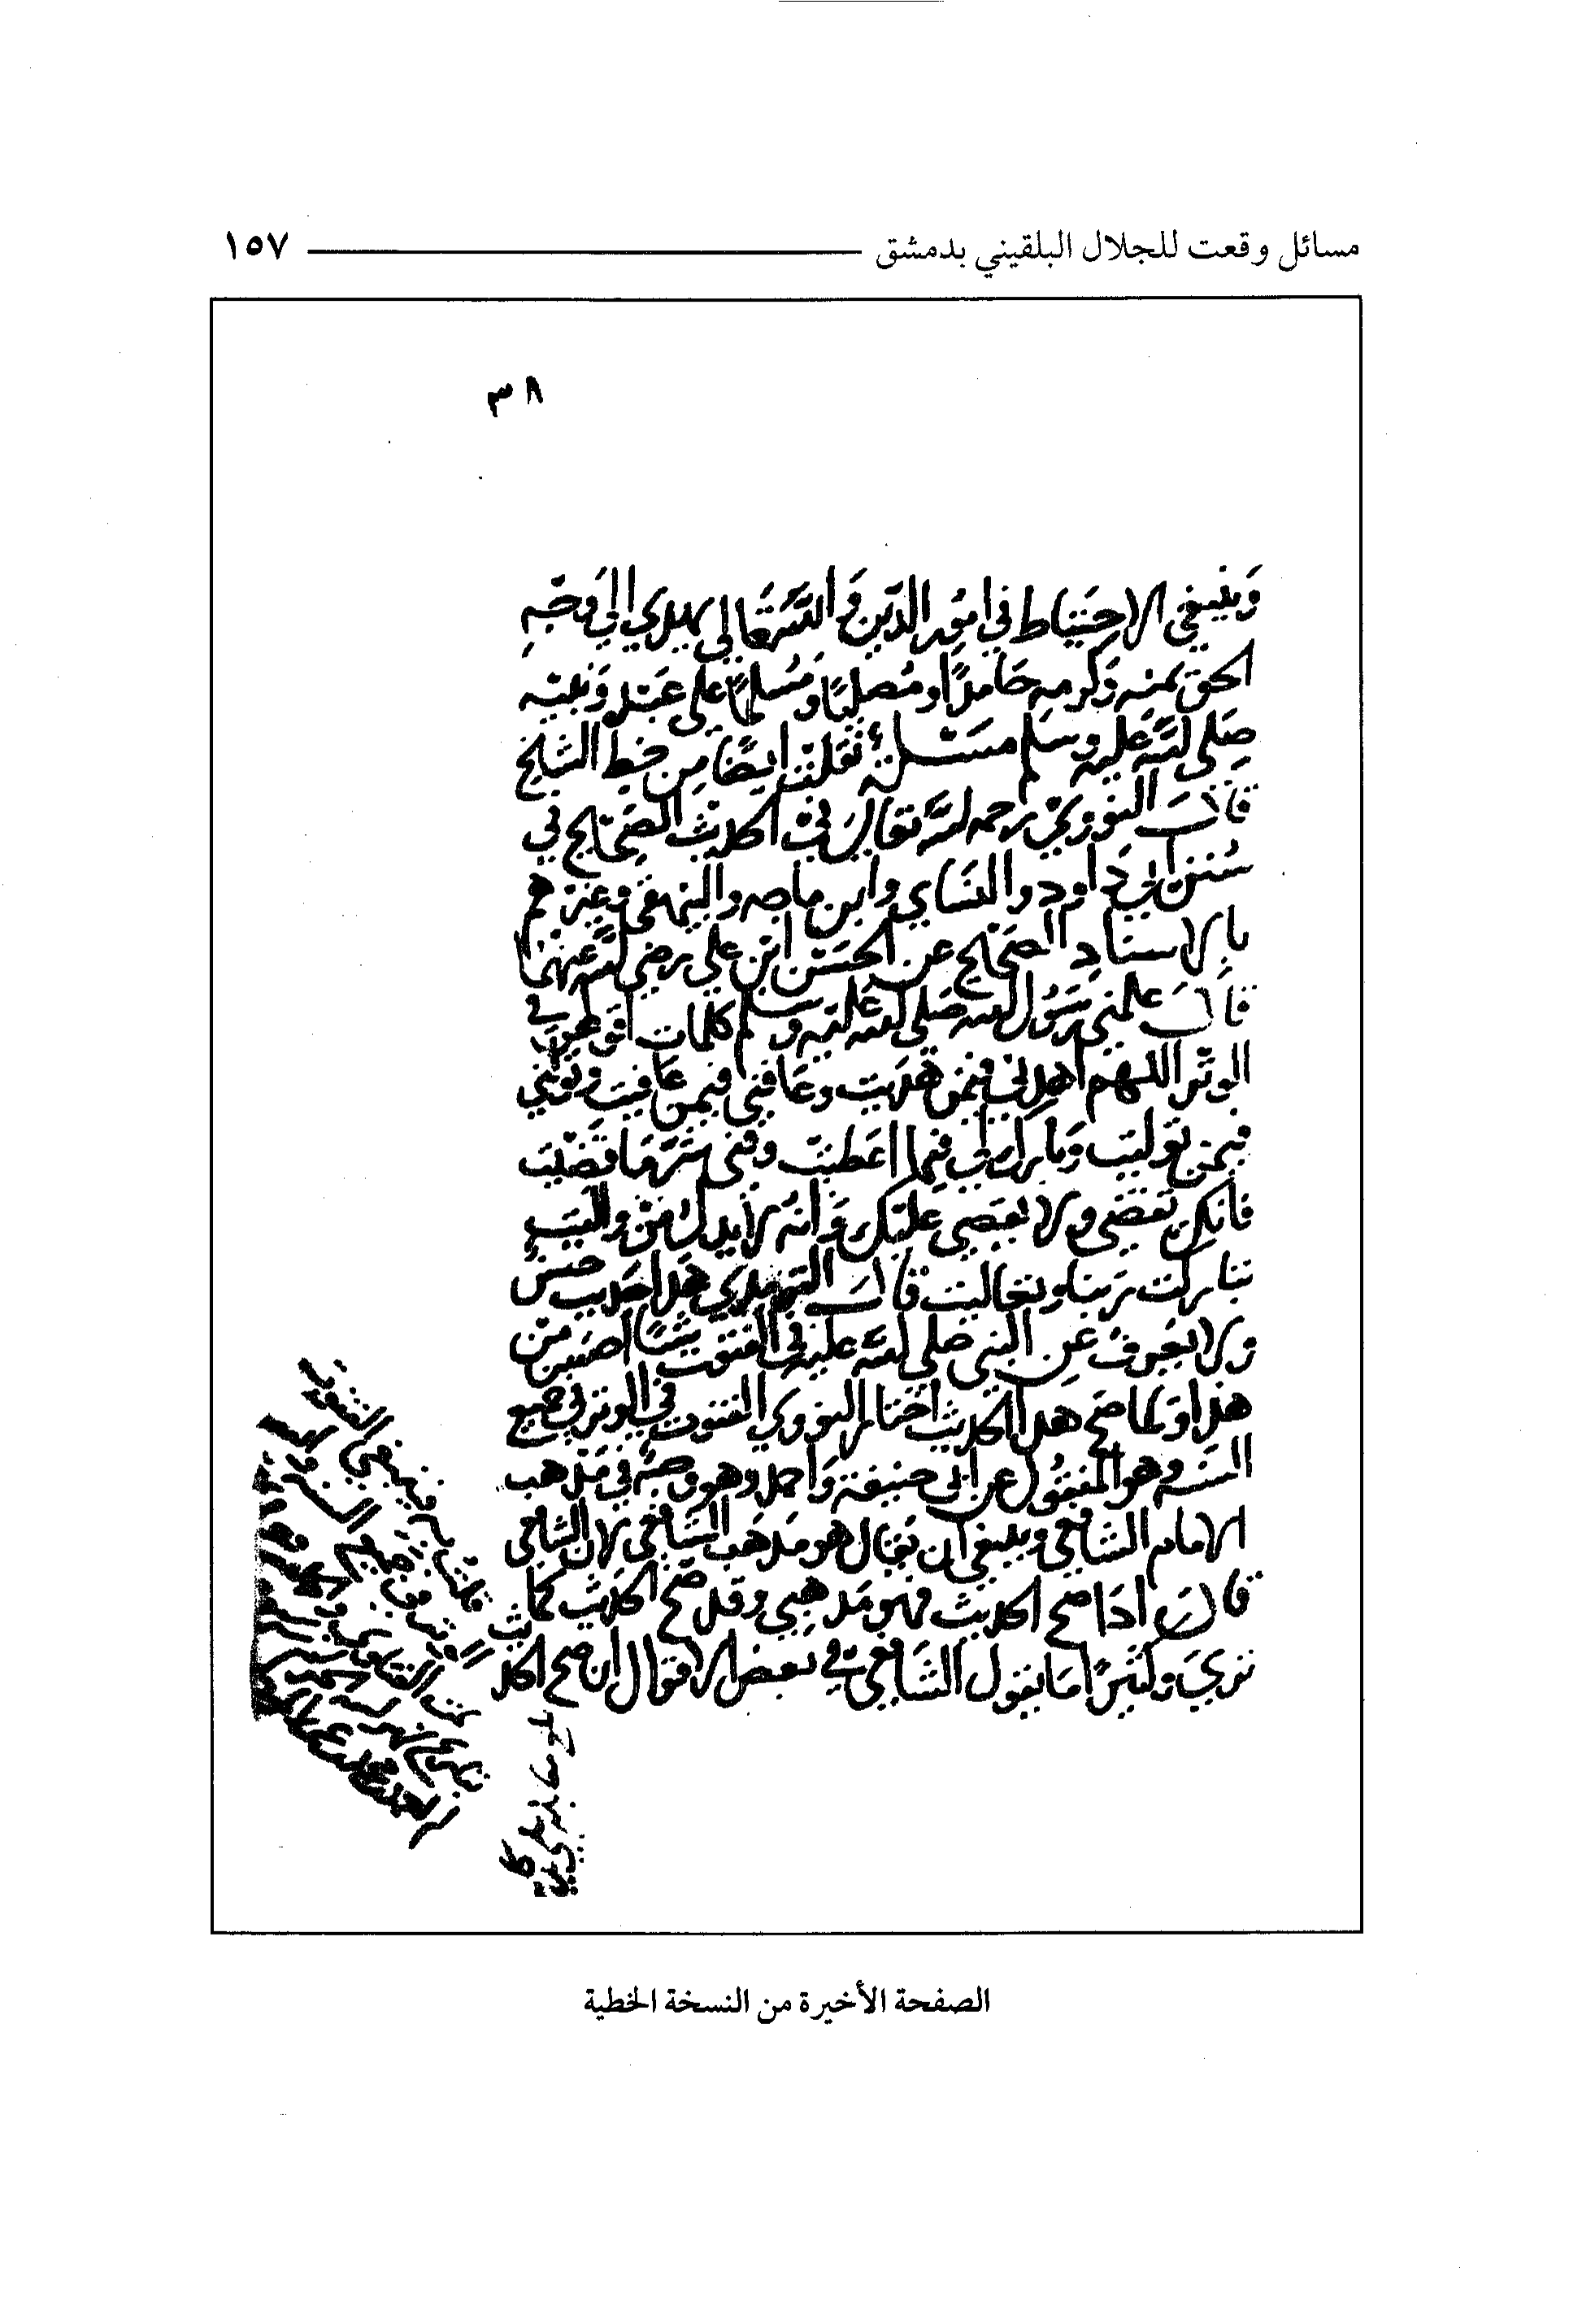 مسائل وقعت للجلال البلقيني بدمشق ١٥٧
٣٨
وَينبغي الاحتياط في امُور الدّين وَالله تعَالى يهدي الى وَجْهِ
الحق بمنه وَكرمه حَامدًا ومُصليًا ومُسلمًا على عَبده وَنبيّه
صَلى الله عَليه وسَلم مسَئلة نقلت ايضًا مِن خط الشيخ
قال النووي رحمه الله تعالى في الحديث الصَحيح في
سُنن ابي دَاود والنسَاي وابن ماجه والبيهقي وغيرهم
بالاسنادِ الصَحيح عن الحسَن ابن علي رضي الله عنهما
قالَ علمني رسُول الله صَلى الله عَليه وسلم كلمات اقولهن في
الوتر اللهم اهدني فيمن هدَيت وعَافني فيمن عَافيت وتولني
فيمن توليت وَبارك لي فيما اعَطيت وقني شرّ مَا قضَيْت
فانك تقضي ولا يقضي عَليك وَانه لا يذل من واليت
تباركت ربنا وتعاليت قالَ الترمذي هَذا حديث حسَن
ولا يعرف عن النبي صَلى الله عليه في القنوت شيئًا احسَن من
هذا ولما صح هذا الحديث اختار النووي القنوت في الوتر في جميع
السَنه وهو المنقول عن ابي حنيفة وَاحمد وهو وجهٌ في مذهب
الامام الشافعي وينبغي ان يقال هو مذهَب الشافعي لان الشافعي
قالَ اذا صح الحديث فهو مَذهبي وقد صَح الحديث كما
ترَي وكثيرًا مَا يقول الشَافعي في بعض الاقوال ان صح الحديث
بلغ مقابلة
الصفحة الأخيرة من النسخة الخطية